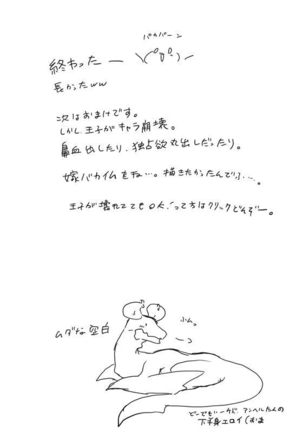 パカパーン
終わったー ＼(^o^)／
長かったww
次はおまけです。
しかし王子がキャラ崩壊。
鼻血出したり、独占欲丸出しだったり。
嫁バカイムをね…。描きたかったんでふ…。
王子が壊れててもOK！って方はクリックどんぞー。
ムダな空白
ふん。
どーでもいーけど アンヘルたんの
下半身エロイしおま